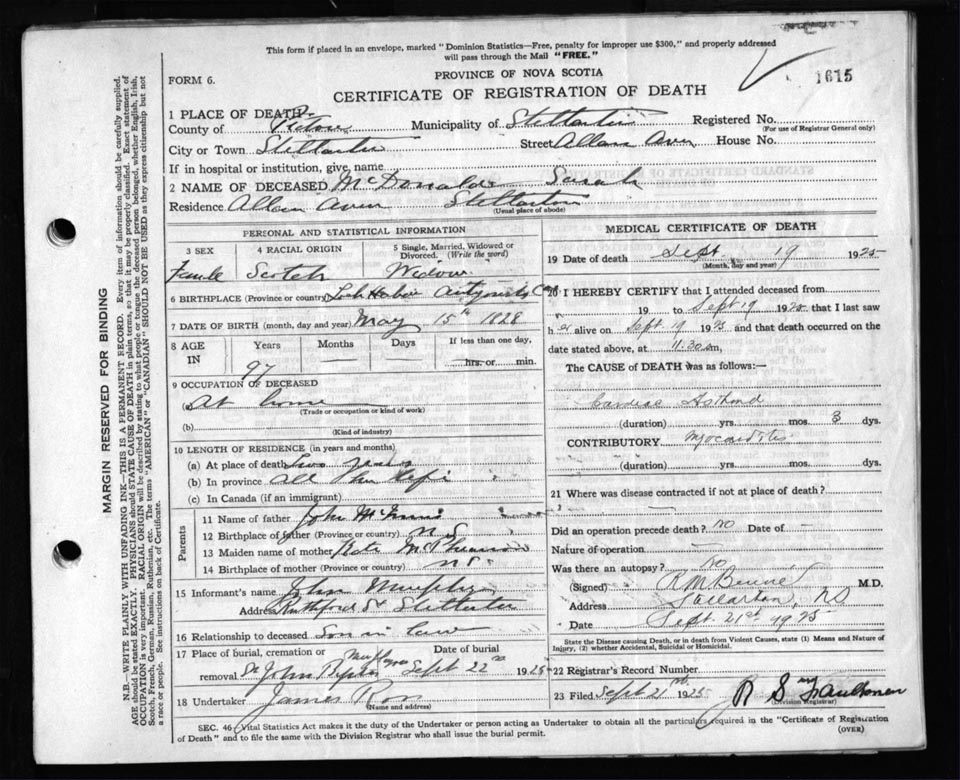 This form if placed in an envelope, marked "Dominion Statistics—Free, penalty for improper use $300," and properly addressed
will pass through the Mail "FREE."
PROVINCE OF NOVA SCOTIA
FORM 6.
1615
CERTIFICATE OF REGISTRATION OF DEATH
1 PLACE OF DEATH—
County of Pictou Municipality of Stellarton Registered No.
(For use of Registrar General only)
City or Town Stellarton Street Allan Aven House No.
If in hospital or institution, give name
2 NAME OF DECEASED McDonald Sarah
Residence Allan Aven Stellarton
(Usual place of abode)
PERSONAL AND STATISTICAL INFORMATION
3 SEX 4 RACIAL ORIGIN 5 Single, Married, Widowed or Divorced. (Write the word)
Female Scotch Widow
6 BIRTHPLACE (Province or country) Loch Haber Antigonish
7 DATE OF BIRTH (month, day and year) May 15th 1828
8 AGE IN Years Months Days If less than one day,
97 hrs. or min.
9 OCCUPATION OF DECEASED
At home
(Trade or occupation or kind of work)
(b)
(Kind of industry)
10 LENGTH OF RESIDENCE (in years and months)
(a) At place of death Two years
(b) In province all her life
(c) In Canada (if an immigrant)
Parents
11 Name of father John McInnis
12 Birthplace of father (Province or country) N S
13 Maiden name of mother Kate McPherson
14 Birthplace of mother (Province or country) N S
15 Informant's name John Murphy
Address Rutherford St Stellarton
16 Relationship to deceased Son in law
17 Place of burial, cremation or removal Date of burial
St John Sept 22nd 1925
18 Undertaker James Ross
(Name and address)
MEDICAL CERTIFICATE OF DEATH
19 Date of death Sept 19 1925
(Month, day and year)
20 I HEREBY CERTIFY that I attended deceased from
19 to Sept 19 1925 that I last saw
h er alive on Sept 19 1925 and that death occurred on the
date stated above, at 11.30 m,
The CAUSE of DEATH was as follows:—
Cardiac Asthma
(duration) yrs. mos. 3 dys.
CONTRIBUTORY Myocarditis
(duration) yrs. mos. dys.
21 Where was disease contracted if not at place of death?
Did an operation precede death? No Date of —
Nature of operation —
Was there an autopsy? No
(Signed) M.D.
Address Stellarton, NS
Date Sept. 21st 1925
State the Disease causing Death, or in death from Violent Causes, state (1) Means and Nature of
Injury, (2) whether Accidental, Suicidal or Homicidal.
22 Registrar's Record Number
23 Filed Sept 21 1925 R S Faulkner
(Division Registrar)
SEC. 46 (Vital Statistics Act makes it the duty of the Undertaker or person acting as Undertaker to obtain all the particulars required in the "Certificate of Registration
of Death" and to file the same with the Division Registrar who shall issue the burial permit.
(OVER)
MARGIN RESERVED FOR BINDING
N.B.—WRITE PLAINLY WITH UNFADING INK—THIS IS A PERMANENT RECORD. Every item of information should be carefully supplied.
AGE should be stated EXACTLY. PHYSICIANS should STATE CAUSE OF DEATH in plain terms, so that it may be properly classified. Exact statement of
OCCUPATION is very important. RACIAL ORIGIN will be described by stating to what people or tongue the deceased person belonged, whether English, Irish,
Scotch, French, German, Russian, Ruthenian, etc. The terms "AMERICAN" or "CANADIAN" SHOULD NOT BE USED as they express citizenship but not
a race or people. See instructions on back of Certificate.